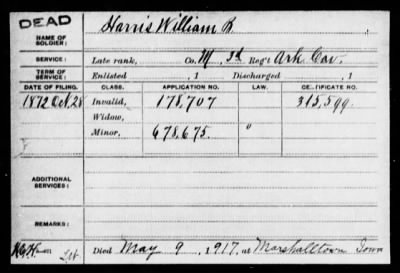 DEAD
NAME OF SOLDIER: Harris William R
SERVICE: Late rank, Co. M, 3d Reg't Ark Cav.
TERM OF SERVICE: Enlisted , 1 Discharged , 1
DATE OF FILING. CLASS. APPLICATION NO. LAW. CERTIFICATE NO.
1872 Oct. 28 Invalid, 178,707 315,599.
Widow,
Minor, 678,675. "
ADDITIONAL SERVICES:
REMARKS:
Died May 9, 1917, at Marshalltown Iowa